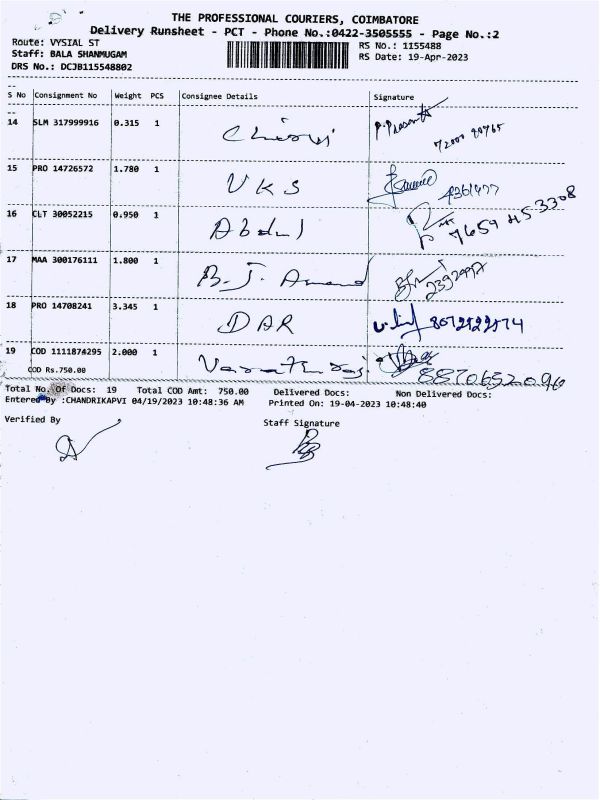 THE PROFESSIONAL COURIERS, COIMBATORE
Delivery Runsheet - PCT - Phone No.:0422-3505555 - Page No.:2
Route: VYSIAL ST RS No.: 1155488
Staff: BALA SHANMUGAM RS Date: 19-Apr-2023
DRS No.: DCJB115548802
S No Consignment No Weight PCS Consignee Details Signature
14 SLM 317999916 0.315 1
15 PRO 14726572 1.780 1 VKS
16 CLT 30052215 0.950 1 Abdul
17 MAA 300176111 1.800 1 B.J. Anand
18 PRO 14708241 3.345 1 DAR
19 COD 1111874295 2.000 1
COD Rs.750.00 8870652096
Total No. Of Docs: 19 Total COD Amt: 750.00 Delivered Docs: Non Delivered Docs:
Entered By :CHANDRIKAPVI 04/19/2023 10:48:36 AM Printed On: 19-04-2023 10:48:40
Verified By Staff Signature